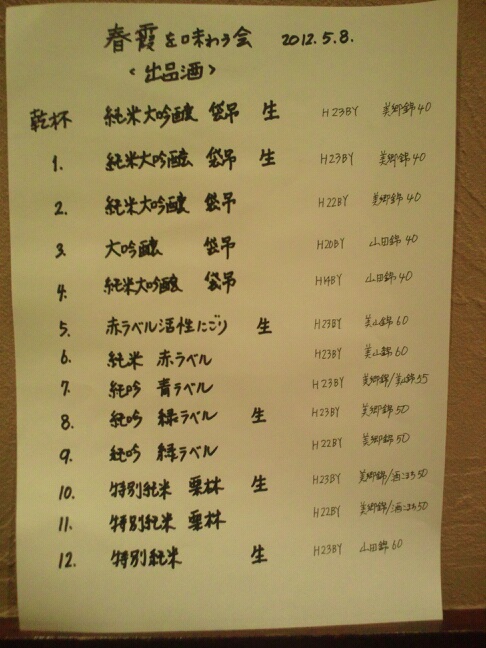 春霞を味わう会 2012.5.8.
<出品酒>
乾杯 純米大吟醸 袋吊 生 H23BY 美郷錦40
1. 純米大吟醸 袋吊 生 H23BY 美郷錦40
2. 純米大吟醸 袋吊 H22BY 美郷錦40
3. 大吟醸 袋吊 H20BY 山田錦40
4. 純米大吟醸 袋吊 H14BY 山田錦40
5. 赤ラベル活性にごり 生 H23BY 美山錦60
6. 純米 赤ラベル H23BY 美山錦60
7. 純吟 青ラベル H23BY 美郷錦/美山錦55
8. 純吟 緑ラベル 生 H23BY 美郷錦50
9. 純吟 緑ラベル H22BY 美郷錦50
10. 特別純米 栗林 生 H23BY 美郷錦/酒こまち50
11. 特別純米 栗林 H22BY 美郷錦/酒こまち50
12. 特別純米 生 H23BY 山田錦60